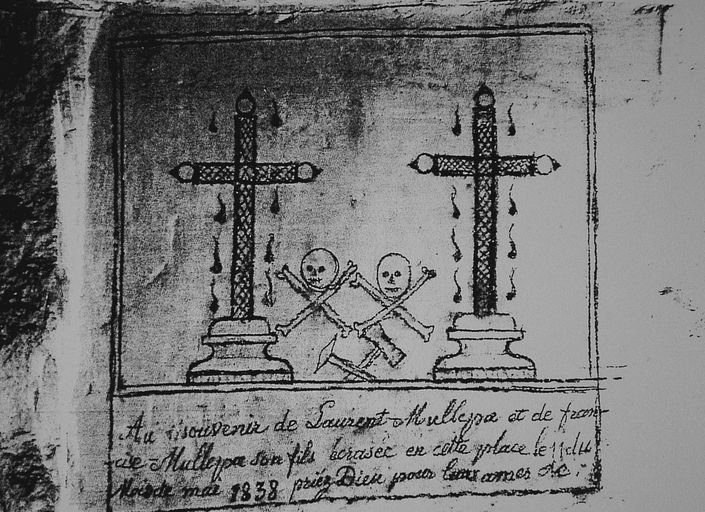 Au souvenir de Laurent Mullepa et de fran-
cie Mullepa son fils écrasec en cette place le 11 du
Mois de mai 1838 priéz Dieu pour leurs ames